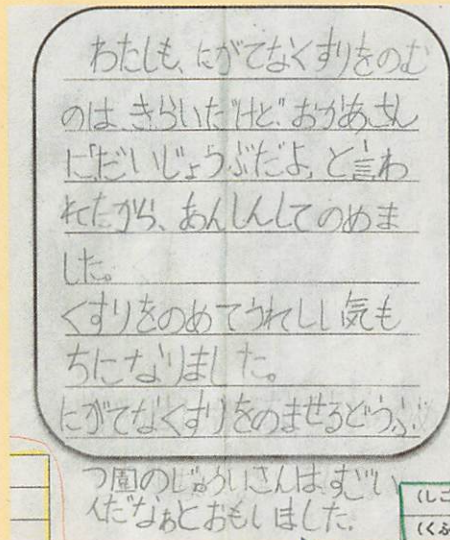 わたしも、にがてなくすりをのむ
のは、きらいだけど、おかあさん
に、だいじょうぶだよ、と言わ
れたから、あんしんしてのめま
した。
くすりをのめてうれしし気も
ちになりました。
にがてなくすりをのませるどうぶ
つ園のじゅういさんは、すごい
人だなぁとおもいました。
(しご
(くふ